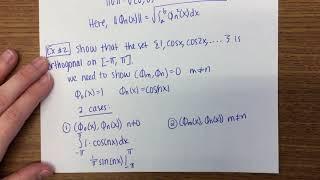 Here, ||φn(x)|| = √∫ₐᵇ φn²(x)dx
Ex #2 Show that the set {1, cosx, cos2x, .... } is
orthogonal on [-π, π].
we need to show (φm, φn) = 0 m≠n
φ₀(x) = 1 φn(x) = cos(nx)
2 cases:
① (φ₀(x), φn(x)) n≠0 ② (φm(x), φn(x)) m≠n
∫ 1·cos(nx)dx
-π π
1/n sin(nx)|
-π